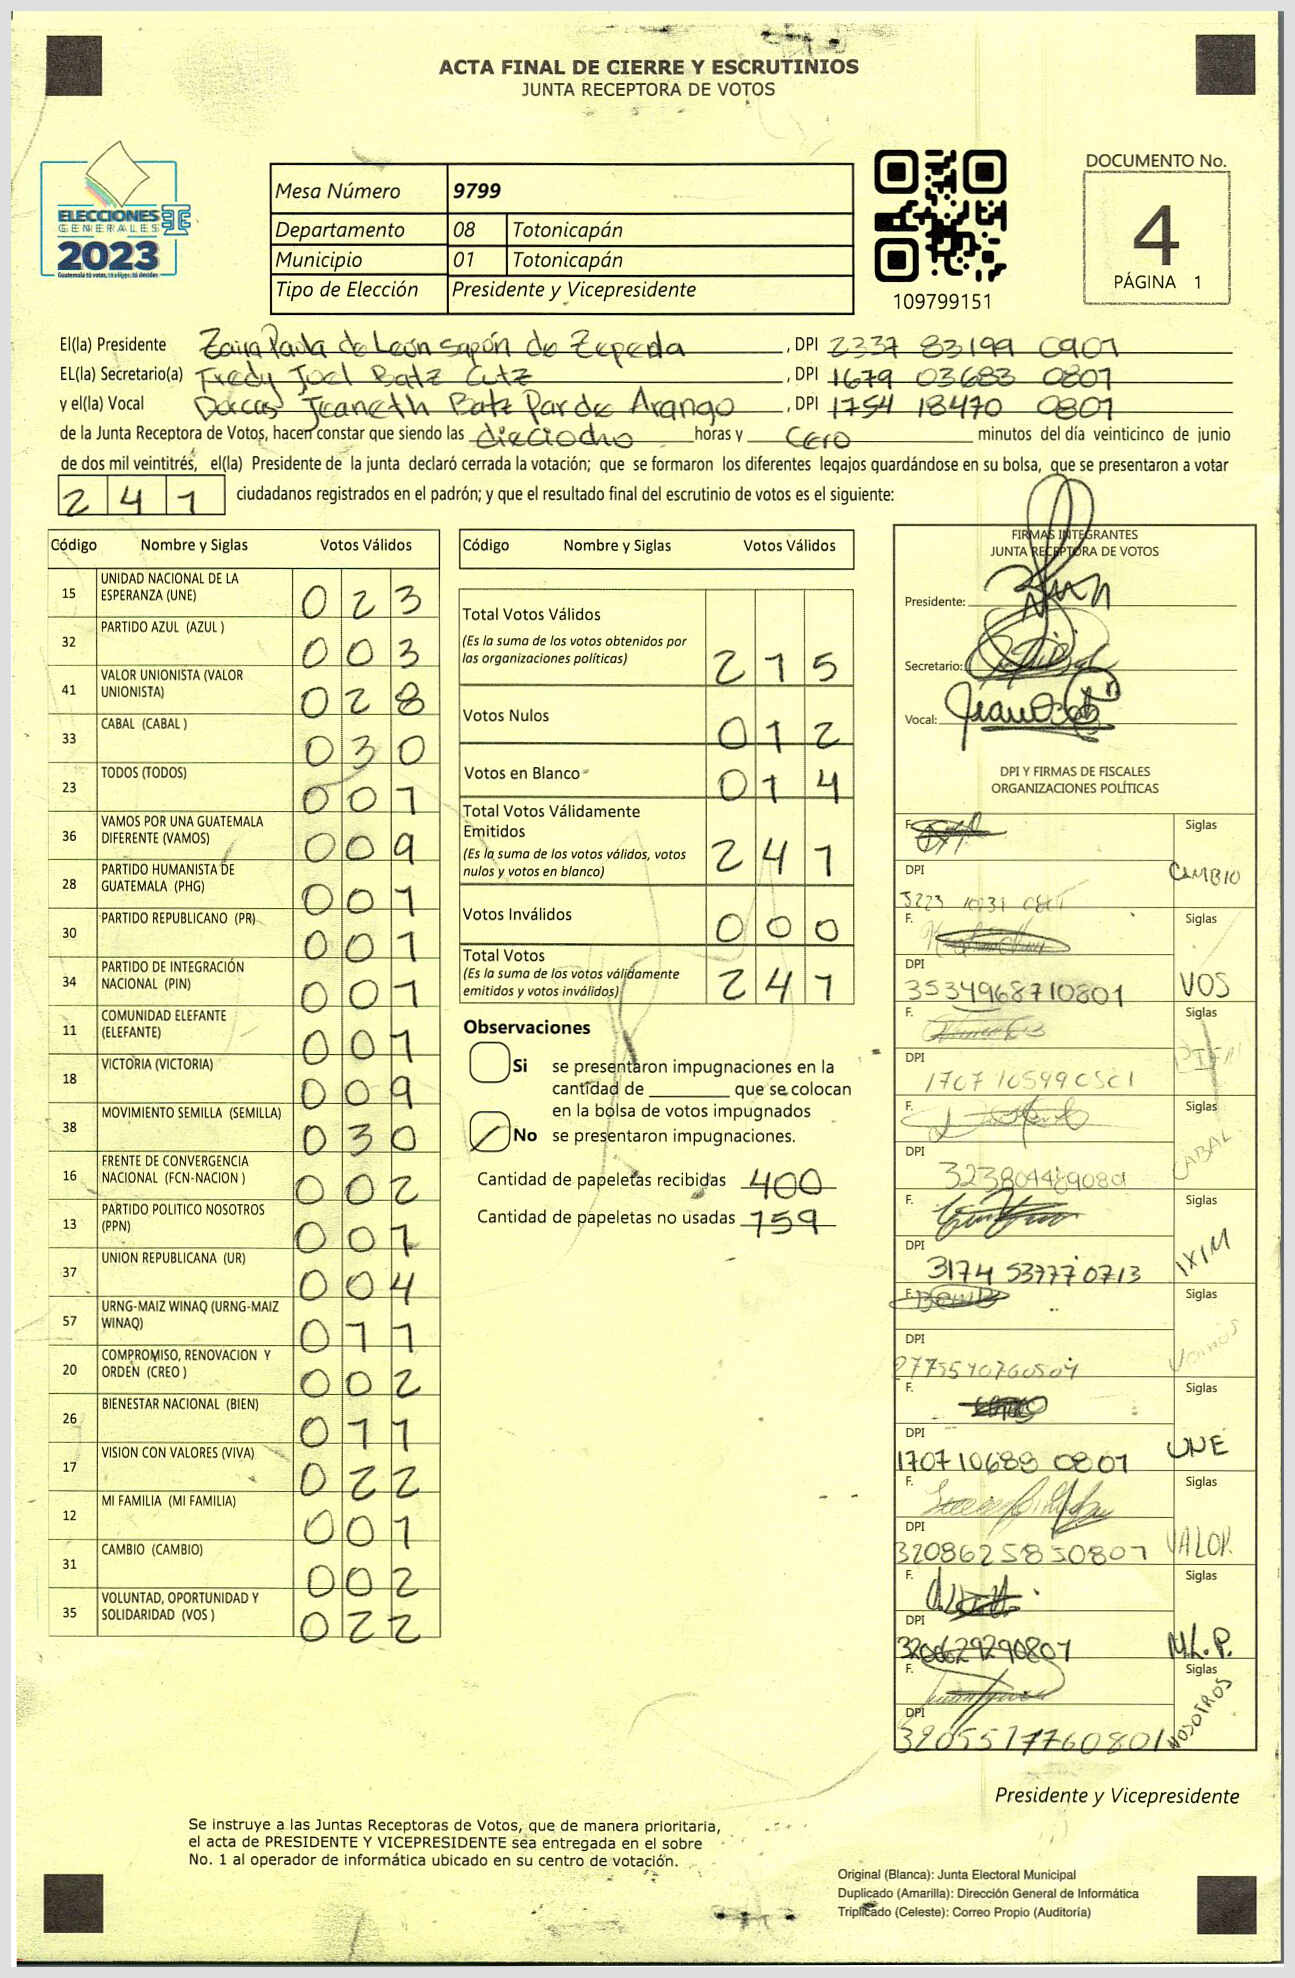 ACTA FINAL DE CIERRE Y ESCRUTINIOS
JUNTA RECEPTORA DE VOTOS
ELECCIONES
GENERALES
2023
Mesa Número 9799
Departamento 08 Totonicapán
Municipio 01 Totonicapán
Tipo de Elección Presidente y Vicepresidente
109799151
DOCUMENTO No.
4
PÁGINA 1
El(la) Presidente Zaira Paola de León Sapón de Zepeda , DPI 2337 83199 0901
EL(la) Secretario(a) Fredy Joel Batz Cutz , DPI 1679 03683 0801
y el(la) Vocal Dorcas Jeaneth Batz Par de Arango , DPI 1754 18470 0801
de la Junta Receptora de Votos, hacen constar que siendo las dieciocho horas y cero minutos del día veinticinco de junio
de dos mil veintitrés, el(la) Presidente de la junta declaró cerrada la votación; que se formaron los diferentes legajos guardándose en su bolsa, que se presentaron a votar
241 ciudadanos registrados en el padrón; y que el resultado final del escrutinio de votos es el siguiente:
Código Nombre y Siglas Votos Válidos
15 UNIDAD NACIONAL DE LA ESPERANZA (UNE) 023
32 PARTIDO AZUL (AZUL ) 003
41 VALOR UNIONISTA (VALOR UNIONISTA) 028
33 CABAL (CABAL ) 030
23 TODOS (TODOS) 001
36 VAMOS POR UNA GUATEMALA DIFERENTE (VAMOS) 009
28 PARTIDO HUMANISTA DE GUATEMALA (PHG) 001
30 PARTIDO REPUBLICANO (PR) 001
34 PARTIDO DE INTEGRACIÓN NACIONAL (PIN) 001
11 COMUNIDAD ELEFANTE (ELEFANTE) 001
18 VICTORIA (VICTORIA) 009
38 MOVIMIENTO SEMILLA (SEMILLA) 030
16 FRENTE DE CONVERGENCIA NACIONAL (FCN-NACION ) 002
13 PARTIDO POLITICO NOSOTROS (PPN) 001
37 UNION REPUBLICANA (UR) 004
57 URNG-MAIZ WINAQ (URNG-MAIZ WINAQ) 011
20 COMPROMISO, RENOVACION Y ORDEN (CREO ) 002
26 BIENESTAR NACIONAL (BIEN) 011
17 VISION CON VALORES (VIVA) 022
12 MI FAMILIA (MI FAMILIA) 001
31 CAMBIO (CAMBIO) 002
35 VOLUNTAD, OPORTUNIDAD Y SOLIDARIDAD (VOS ) 022
Código Nombre y Siglas Votos Válidos
Total Votos Válidos
(Es la suma de los votos obtenidos por
las organizaciones políticas) 215
Votos Nulos 012
Votos en Blanco 014
Total Votos Válidamente
Emitidos
(Es la suma de los votos válidos, votos
nulos y votos en blanco) 241
Votos Inválidos 000
Total Votos
(Es la suma de los votos válidamente
emitidos y votos inválidos) 241
Observaciones
Si se presentaron impugnaciones en la
cantidad de ________ que se colocan
en la bolsa de votos impugnados
No se presentaron impugnaciones.
Cantidad de papeletas recibidas 400
Cantidad de papeletas no usadas 159
FIRMAS INTEGRANTES
JUNTA RECEPTORA DE VOTOS
Presidente:
Secretario:
Vocal:
DPI Y FIRMAS DE FISCALES
ORGANIZACIONES POLÍTICAS
F. Siglas
DPI CAMBIO
F. Siglas
DPI VOS
3534968710801
F. Siglas
DPI
F. Siglas
DPI CABAL
F. Siglas
DPI IXIM
3174 53777 0713
F. Siglas
DPI Vamos
F. Siglas
DPI UNE
1707 10688 0801
F. Siglas
DPI VALOR
3208625850801
F. Siglas
DPI M.L.P.
320629290801
F. Siglas
DPI NOSOTROS
3205517760801
Presidente y Vicepresidente
Se instruye a las Juntas Receptoras de Votos, que de manera prioritaria,
el acta de PRESIDENTE Y VICEPRESIDENTE sea entregada en el sobre
No. 1 al operador de informática ubicado en su centro de votación.
Original (Blanca): Junta Electoral Municipal
Duplicado (Amarilla): Dirección General de Informática
Triplicado (Celeste): Correo Propio (Auditoría)